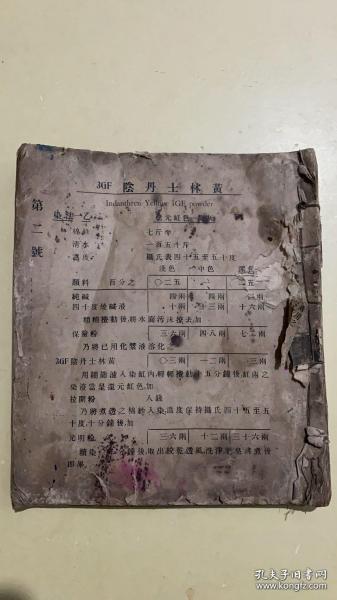 3GF 陰丹士林黃
Indanthren Yellow 3GF powder
第二號
染法乙 還元紅色
棉紗 七百斤
清水 一百五十斤
溫度 攝氏表四十五至五十度
淺色 中色 深色
顏料 百分之 〇二五 二五
純鹼 四兩 四兩 四兩
四十度燒鹼液 十兩 十三兩 十六兩
稍稍攪動後,將水面污沫撩去,加
保險粉 三六兩 四八兩 七二兩
乃將已用化漿液溶化之
3GF陰丹士林黃 〇三兩 一二兩 三兩
用細篩濾入染缸內,輕輕攪動十五分鐘後,缸內之
染液當呈還元紅色,加
拉開粉 八錢
乃將煮透之棉紗入染,溫度保持攝氏四十五至五
十度,十分鐘後,加
元明粉 三六兩 十二兩 三十六兩
續染 分鐘後,取出絞乾透風,洗淨,肥皂沸煮後
即畢.
孔夫子旧书网
book.kongfz.com